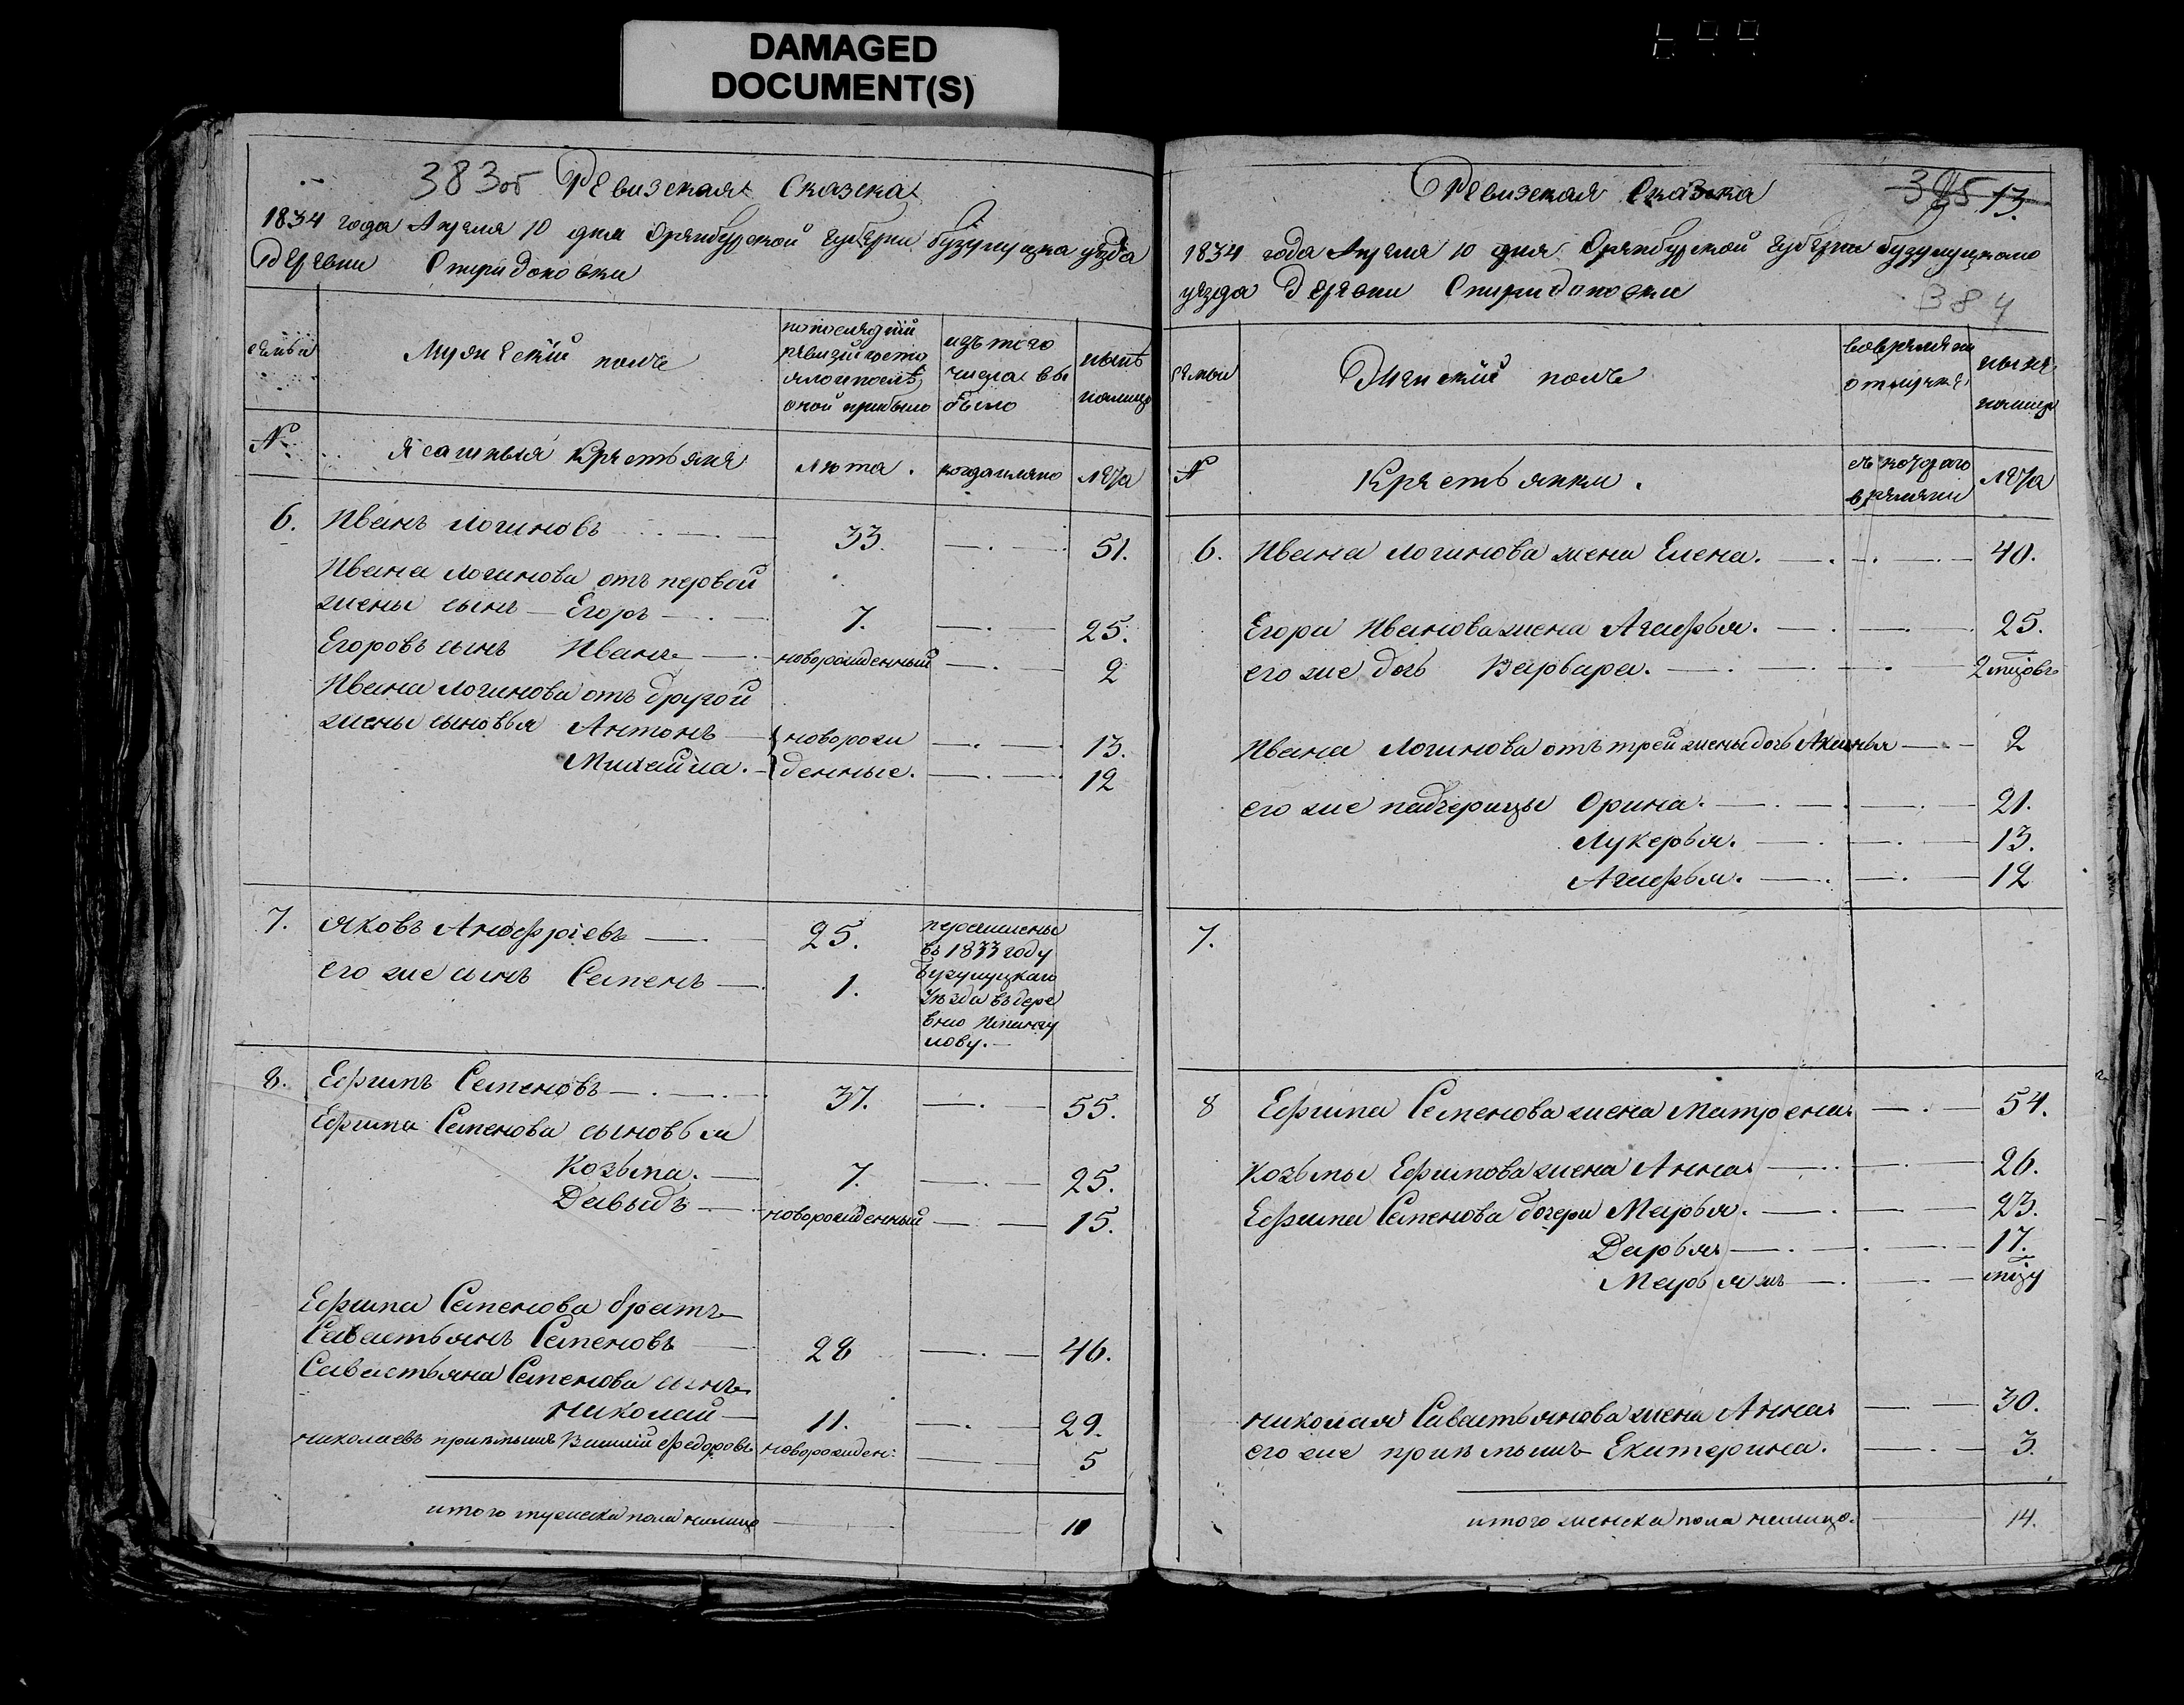 DAMAGED
DOCUMENT(S)
383об Ревизская Сказска
1834 года Апреля 10 дня Оренбурской губерни бузулуцка уезда
Деревни Спиридоновки
семьи
Мужеский поле
по последней
ревизии состо
яло и после
оной прибыло
изъ того
числа вы
было
ныне
налицо
№
Ясашныя Крестьяне
лета.
когда имяно
лета
6. Иванъ Логиновъ 33. 51.
Ивана Логинова отъ первой
жены сынъ Егоръ 7. 25.
Егоровъ сынъ Иванъ новорожденный 2
Ивана Логинова отъ другой
жены сыновья Антонъ новорож 13.
Михайла. денные. 12
7. Яковъ Анофріевъ 25.
его же сынъ Семенъ 1.
перечислены
въ 1833 году
Бузулуцкаго
Уезда въ дере
вню
лову.
8. Ефимъ Семеновъ 37. 55.
Ефима Семенова сыновья
Козьма. 7. 25.
Давыдъ новорожденный 15.
Ефима Семенова братъ
Савастьянъ Семеновъ 28 46.
Савастьяна Семенова сынъ
Николай 11. 29.
Николаевъ приемышъ Василий Федоровъ новорожден: 5
итого мужеска пола налицо 10
Ревизская Сказка 385 13.
1834 года Апреля 10 дня Оренбурской губерни бузулуцкаго
уезда Деревни Спиридоновки
384
семьи
Женский поле
во временной
отлучке
ныне
налицо
№
Крестьянки.
съ котораго
времени
лета
6. Ивана Логинова жена Елена. 40.
Егора Иванова жена Агафья. 25.
его же дочь Варвара. 2 мцовъ
Ивана Логинова отъ трей жены дочь Аксинья 2
его же падчерицы Орина. 21.
Лукерья. 13.
Агафья. 12
7.
8 Ефима Семенова жена Матрена 54.
Козьмы Ефимова жена Анна 26.
Ефима Семенова дочери Марья. 23.
Дарья 17.
Марьямъ мцу
Николая Савастьянова жена Анна 30.
его же приемышъ Екатерина. 3.
итого женска пола налицо. 14.